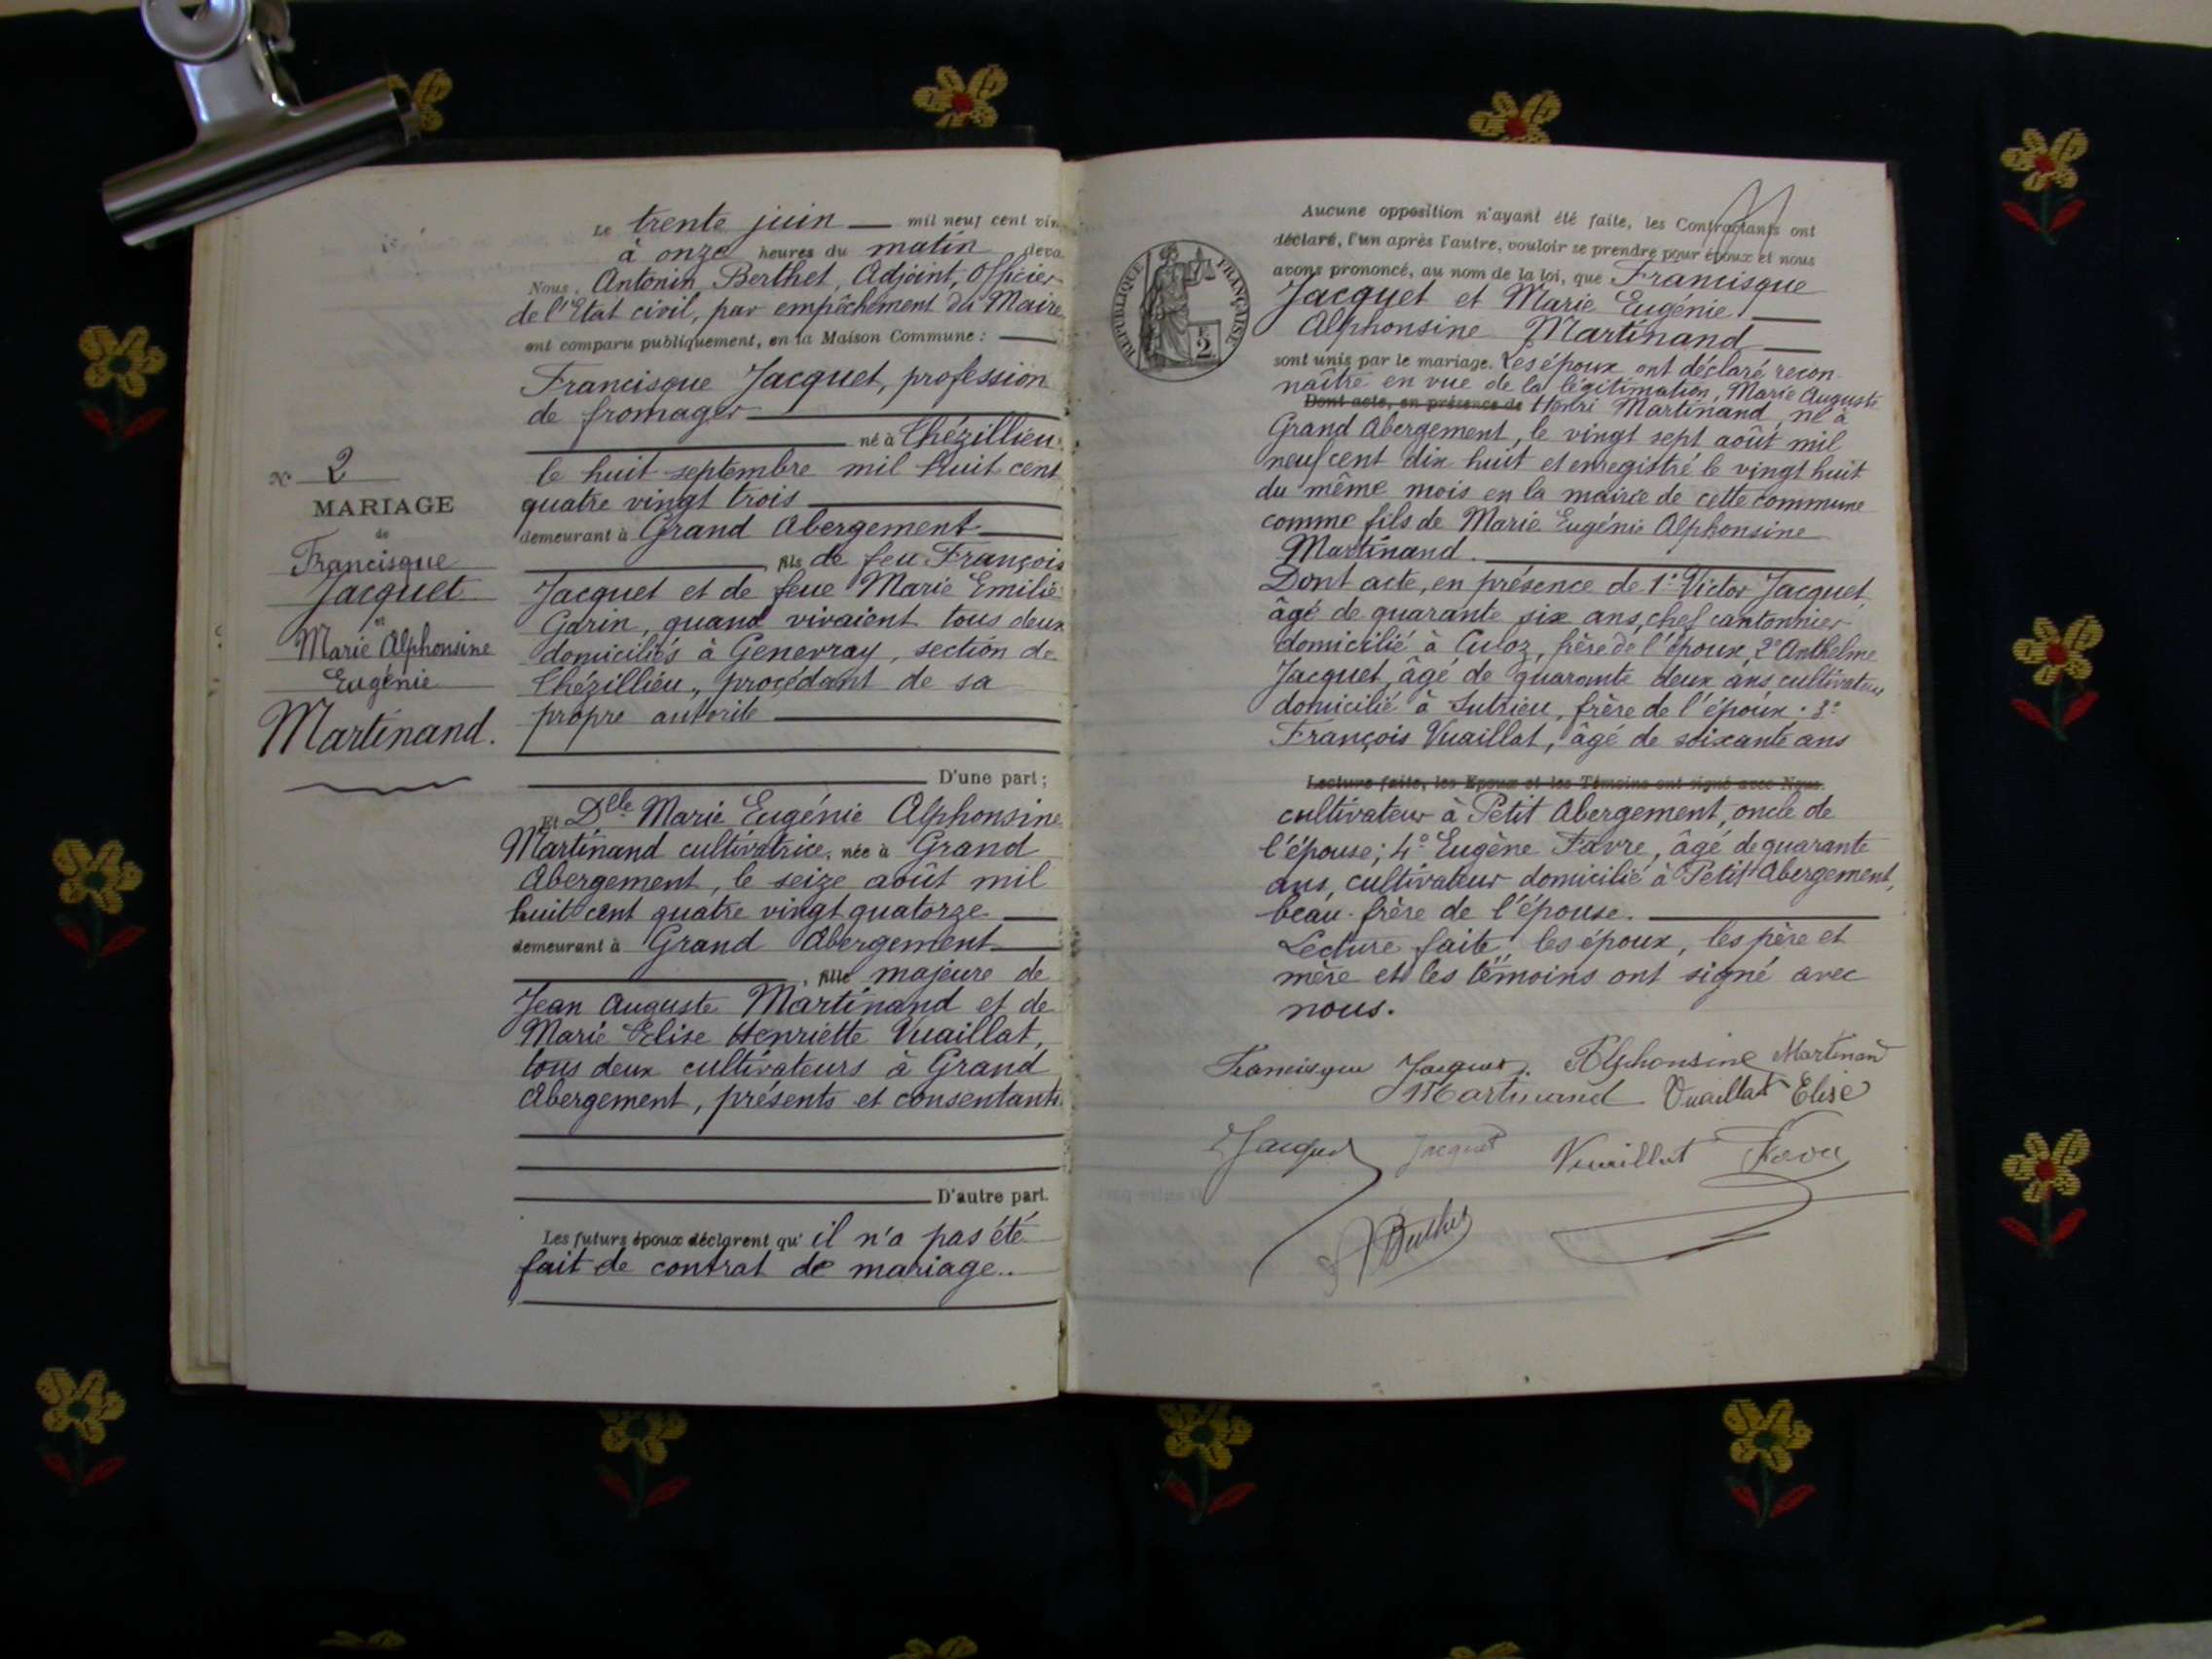 Le trente juin — mil neuf cent vin
à onze heures du matin deva
Nous, Antonin Berthet, Adjoint, Officier
de l'Etat civil, par empêchement du Maire
ont comparu publiquement, en la Maison Commune :
Francisque Jacquet, profession
de fromager
né à Chézillieu
le huit septembre mil huit cent
quatre vingt trois
demeurant à Grand Abergement
, fils de feu François
Jacquet et de feue Marie Emilie
Garin, quand vivaient tous deux
domiciliés à Genevray, section de
Chézillieu, procédant de sa
propre autorité
D'une part ;
Et Dlle Marie Eugénie Alphonsine
Martinand cultivatrice, née à Grand
Abergement, le seize août mil
huit cent quatre vingt quatorze
demeurant à Grand Abergement
, fille majeure de
Jean Auguste Martinand et de
Marie Elise Henriette Vuaillat,
tous deux cultivateurs à Grand
Abergement, présents et consentants
D'autre part.
Les futurs époux déclarent qu' il n'a pas été
fait de contrat de mariage.
N° 2
MARIAGE
de
Francisque
Jacquet
et
Marie Alphonsine
Eugénie
Martinand.
Aucune opposition n'ayant été faite, les Contractants ont
déclaré, l'un après l'autre, vouloir se prendre pour époux et nous
avons prononcé, au nom de la loi, que Francisque
Jacquet et Marie Eugénie
Alphonsine Martinand
sont unis par le mariage. Les époux ont déclaré recon-
naître en vue de la légitimation, Marie Auguste
Dont acte, en présence de Henri Martinand, né à
Grand Abergement, le vingt sept août mil
neuf cent dix huit et enregistré le vingt huit
du même mois en la mairie de cette commune
comme fils de Marie Eugénie Alphonsine
Martinand.
Dont acte, en présence de 1° Victor Jacquet
âgé de quarante six ans, chef cantonnier
domicilié à Culoz, frère de l'époux, 2° Anthelme
Jacquet, âgé de quarante deux ans cultivateur
domicilié à Sutrieu, frère de l'époux. 3°
François Vuaillat, âgé de soixante ans
Lecture faite, les Epoux et les Témoins ont signé avec Nous.
cultivateur à Petit Abergement, oncle de
l'épouse; 4° Eugène Favre, âgé de quarante
ans, cultivateur domicilié à Petit Abergement,
beau-frère de l'épouse.
Lecture faite, les époux, les père et
mère et les témoins ont signé avec
nous.
Francisque Jacquet. Alphonsine Martinand
Martinand Vuaillat Elise
Jacquet Jacquet Vuaillat Favre
A Berthet
RÉPUBLIQUE FRANÇAISE